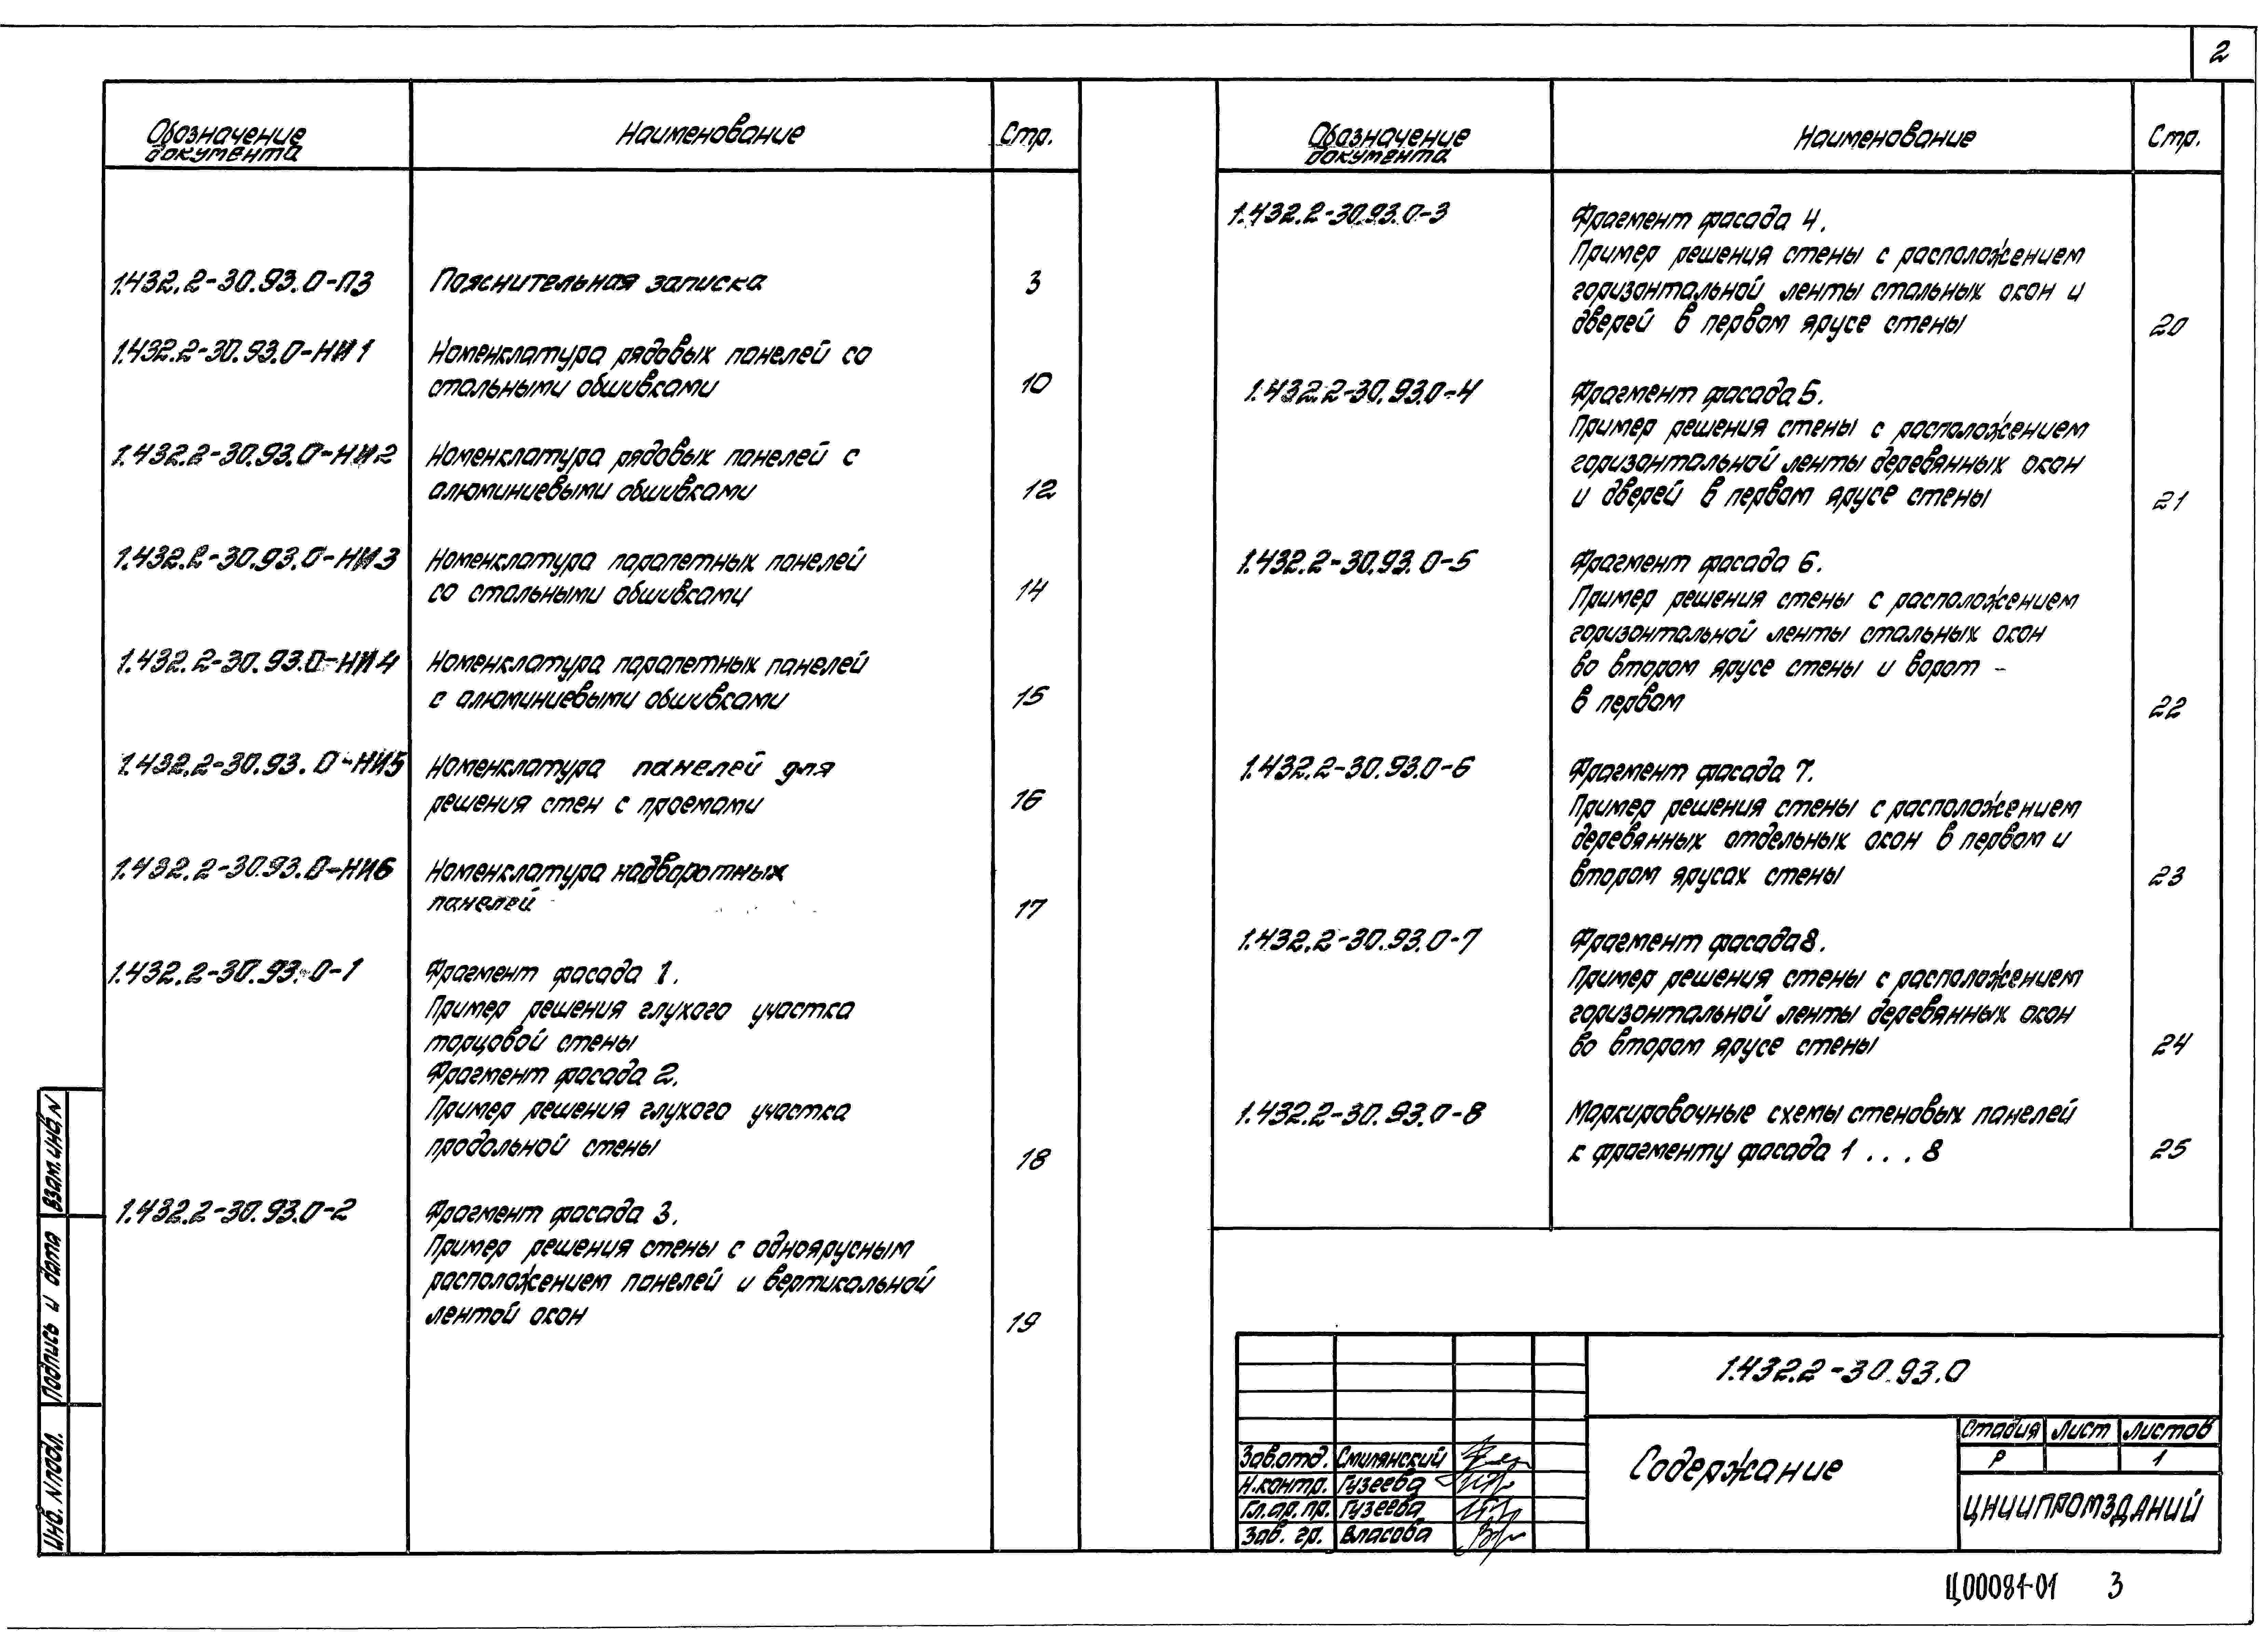 2
Обозначение документа Наименование Стр.
1.432.2-30.93.0-ПЗ Пояснительная записка 3
1.432.2-30.93.0-НИ1 Номенклатура рядовых панелей со
стальными обшивками 10
1.432.2-30.93.0-НИ2 Номенклатура рядовых панелей с
алюминиевыми обшивками 12
1.432.2-30.93.0-НИ3 Номенклатура парапетных панелей
со стальными обшивками 14
1.432.2-30.93.0-НИ4 Номенклатура парапетных панелей
с алюминиевыми обшивками 15
1.432.2-30.93.0-НИ5 Номенклатура панелей для
решения стен с проемами 16
1.432.2-30.93.0-НИ6 Номенклатура надворотных
панелей 17
1.432.2-30.93.0-1 Фрагмент фасада 1.
Пример решения глухого участка
торцовой стены
Фрагмент фасада 2.
Пример решения глухого участка
продольной стены 18
1.432.2-30.93.0-2 Фрагмент фасада 3.
Пример решения стены с одноярусным
расположением панелей и вертикальной
лентой окон 19
Обозначение документа Наименование Стр.
1.432.2-30.93.0-3 Фрагмент фасада 4.
Пример решения стены с расположением
горизонтальной ленты стальных окон и
дверей в первом ярусе стены 20
1.432.2-30.93.0-4 Фрагмент фасада 5.
Пример решения стены с расположением
горизонтальной ленты деревянных окон
и дверей в первом ярусе стены 21
1.432.2-30.93.0-5 Фрагмент фасада 6.
Пример решения стены с расположением
горизонтальной ленты стальных окон
во втором ярусе стены и ворот -
в первом 22
1.432.2-30.93.0-6 Фрагмент фасада 7.
Пример решения стены с расположением
деревянных отдельных окон в первом и
втором ярусах стены 23
1.432.2-30.93.0-7 Фрагмент фасада 8.
Пример решения стены с расположением
горизонтальной ленты деревянных окон
во втором ярусе стены 24
1.432.2-30.93.0-8 Маркировочные схемы стеновых панелей
к фрагменту фасада 1 . . . 8 25
1.432.2-30.93.0
Содержание
Стадия Лист Листов
Р 1
ЦНИИПРОМЗДАНИЙ
Зав.отд. Смилянский
Н.контр. Гузеева
Гл.ар.пр. Гузеева
Зав. гр. Власова
Взам.инв.N
Подпись и дата
Инв. N подл.
Ц00081-01 3